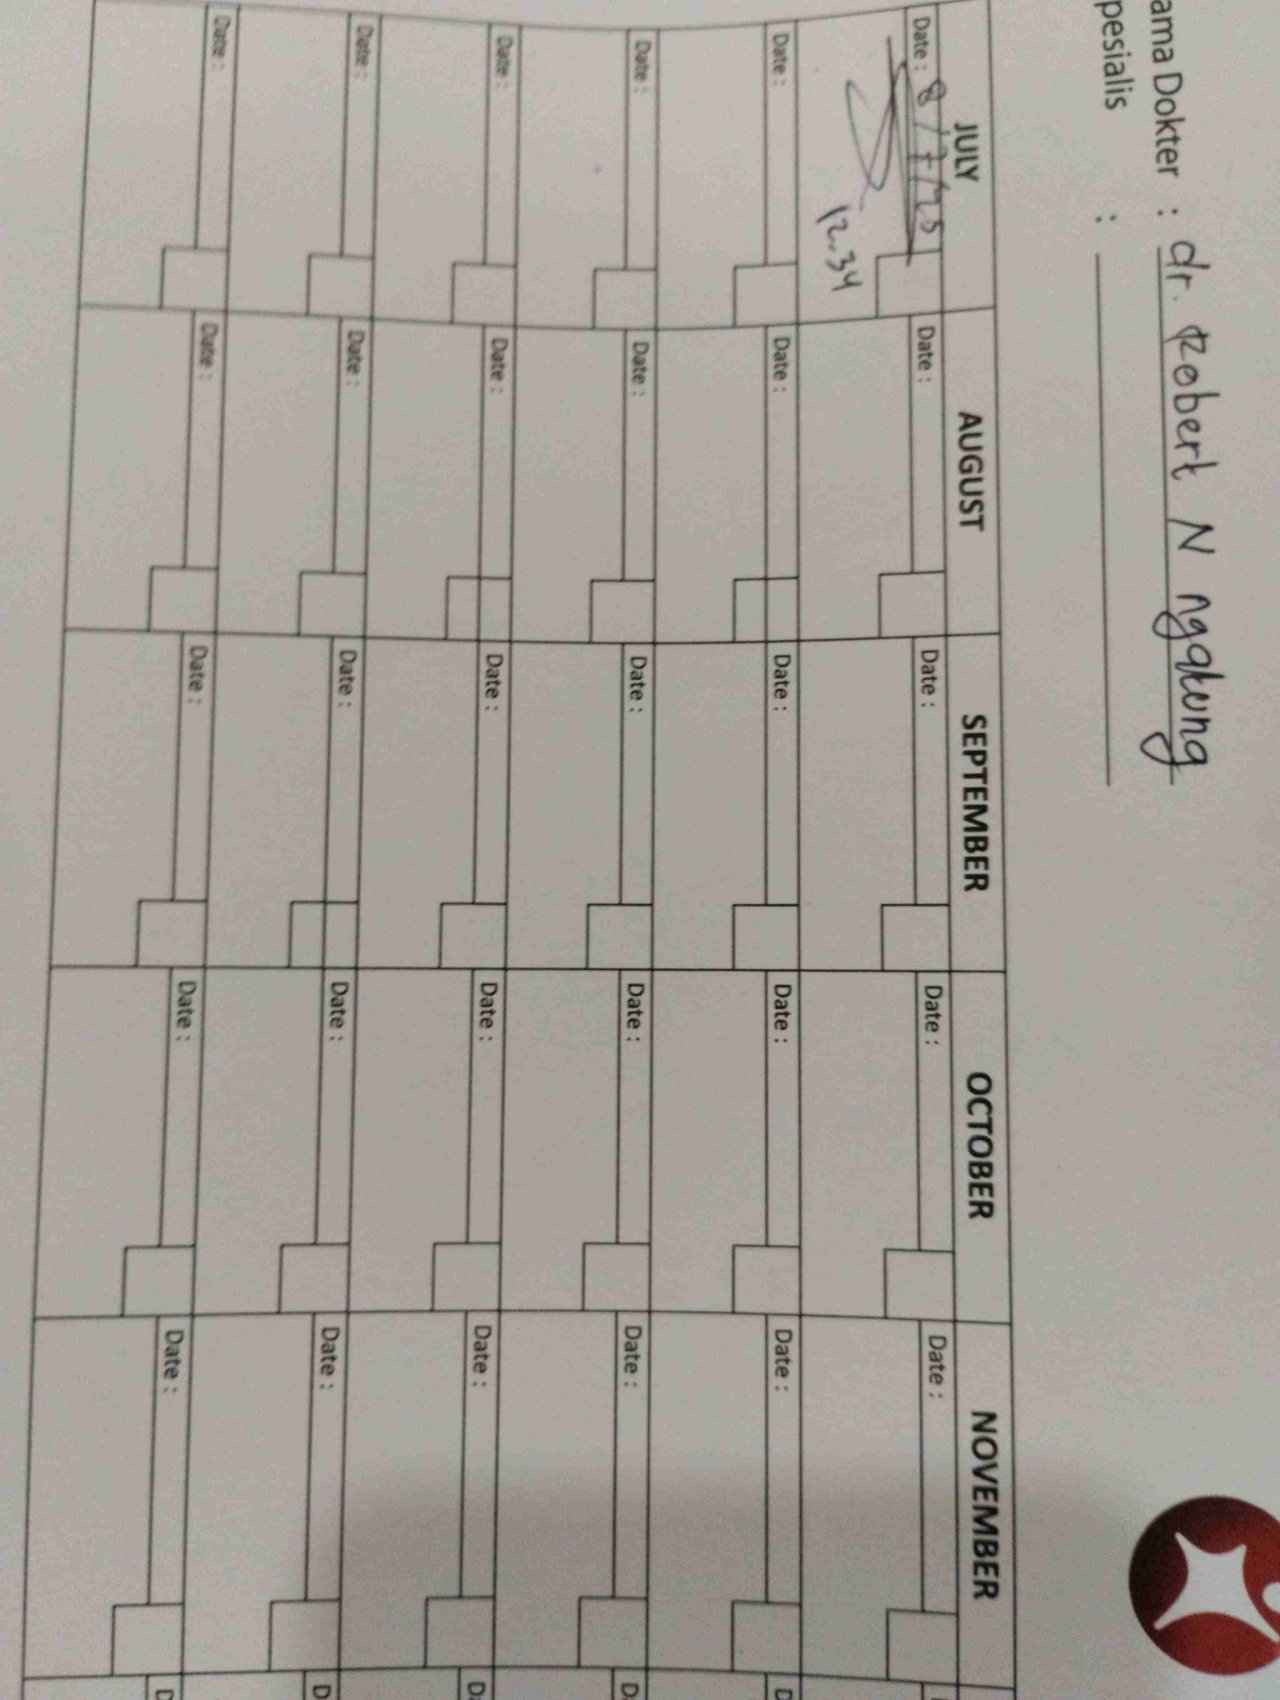 ama Dokter : dr. Robert N ngakung
pesialis :
JULY AUGUST SEPTEMBER OCTOBER NOVEMBER
Date : 8/7/25 Date : Date : Date : Date :
12.34
Date : Date : Date : Date : Date : D
Date : Date : Date : Date : Date : D
Date : Date : Date : Date : Date : D
Date : Date : Date : Date : Date : D
Date : Date : Date : Date : Date : D